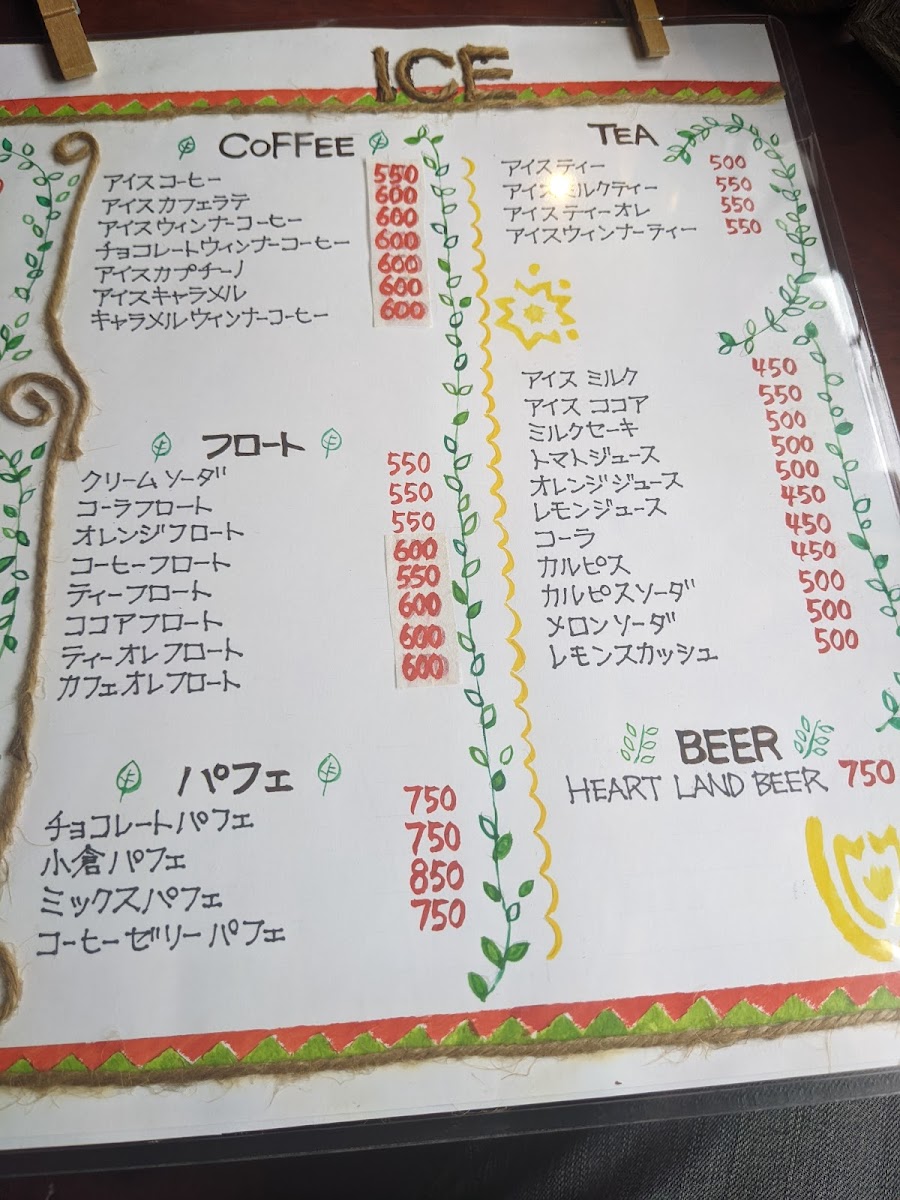 ICE
COFFEE
アイスコーヒー 550
アイスカフェラテ 600
アイスウィンナーコーヒー 600
チョコレートウィンナーコーヒー 600
アイスカプチーノ 600
アイスキャラメル 600
キャラメルウィンナーコーヒー 600
フロート
クリームソーダ 550
コーラフロート 550
オレンジフロート 550
コーヒーフロート 600
ティーフロート 550
ココアフロート 600
ティーオレフロート 600
カフェオレフロート 600
パフェ
チョコレートパフェ 750
小倉パフェ 750
ミックスパフェ 850
コーヒーゼリーパフェ 750
TEA
アイスティー 500
アイスミルクティー 550
アイスティーオレ 550
アイスウィンナーティー 550
アイスミルク 450
アイスココア 550
ミルクセーキ 500
トマトジュース 500
オレンジジュース 500
レモンジュース 450
コーラ 450
カルピス 450
カルピスソーダ 500
メロンソーダ 500
レモンスカッシュ 500
BEER
HEART LAND BEER 750